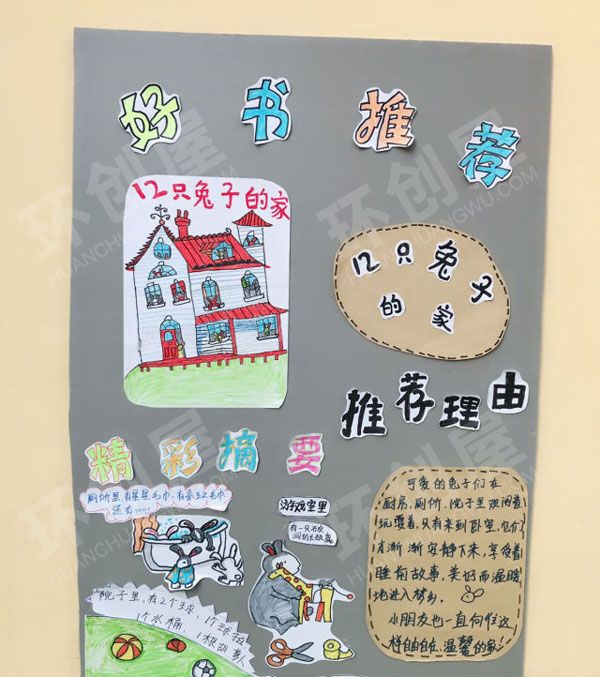 好书推荐
12只兔子的家
12只兔子
的家
推荐理由
精彩摘要
厕所里,有星星毛巾,有条纹毛巾
还有……
游戏室里
有一只皮
院子里,有2个球,1个球拍
1个水桶,1根
可爱的兔子们在
厨房、厕所、院子里欢闹着
玩耍着,只有来到卧室,它们
才渐渐安静下来,享受着
睡前故事,美好而温暖
地进入梦乡。
小朋友也一直向往这
样自由自在、温馨的家!
环创屋
HUANCHUANGWU.COM